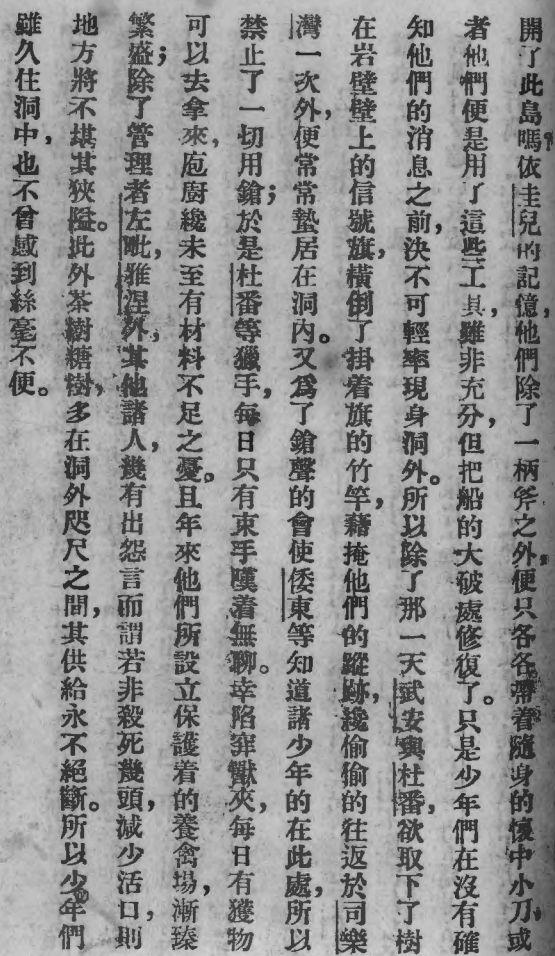 開了此島嗎依圭兒的記憶,他們除了一柄斧之外,便只各各帶着隨身的懷中小刀或
者他們便是用了這些工具,雖非充分,但把船的大破處修復了。只是少年們在沒有確
知他們的消息之前,決不可輕率現身洞外。所以除了那一天武安與杜番,欲取下了樹
在岩壁壁上的信號旗,橫倒了掛着旗的竹竿,藉掩他們的蹤跡,纔偷偷的往返於司樂
灣一次外,便常常蟄居在洞內。又爲了鎗聲的會使倭東等知道諸少年的在此處,所以
禁止了一切用鎗;於是杜番等獵手,每日只有束手嘆着無聊。幸陷穽獸夾,每日有獲物
可以去拿來,庖廚纔未至有材料不足之憂。且年來他們所設立保護着的養禽場,漸臻
繁盛;除了管理者左毗,雅涅外,其他諸人,幾有出怨言而謂若非殺死幾頭,減少活口,則
地方將不堪其狹隘。此外茶樹糖樹,多在洞外咫尺之間,其供給永不絕斷。所以少年們
雖久住洞中,也不曾感到絲毫不便。